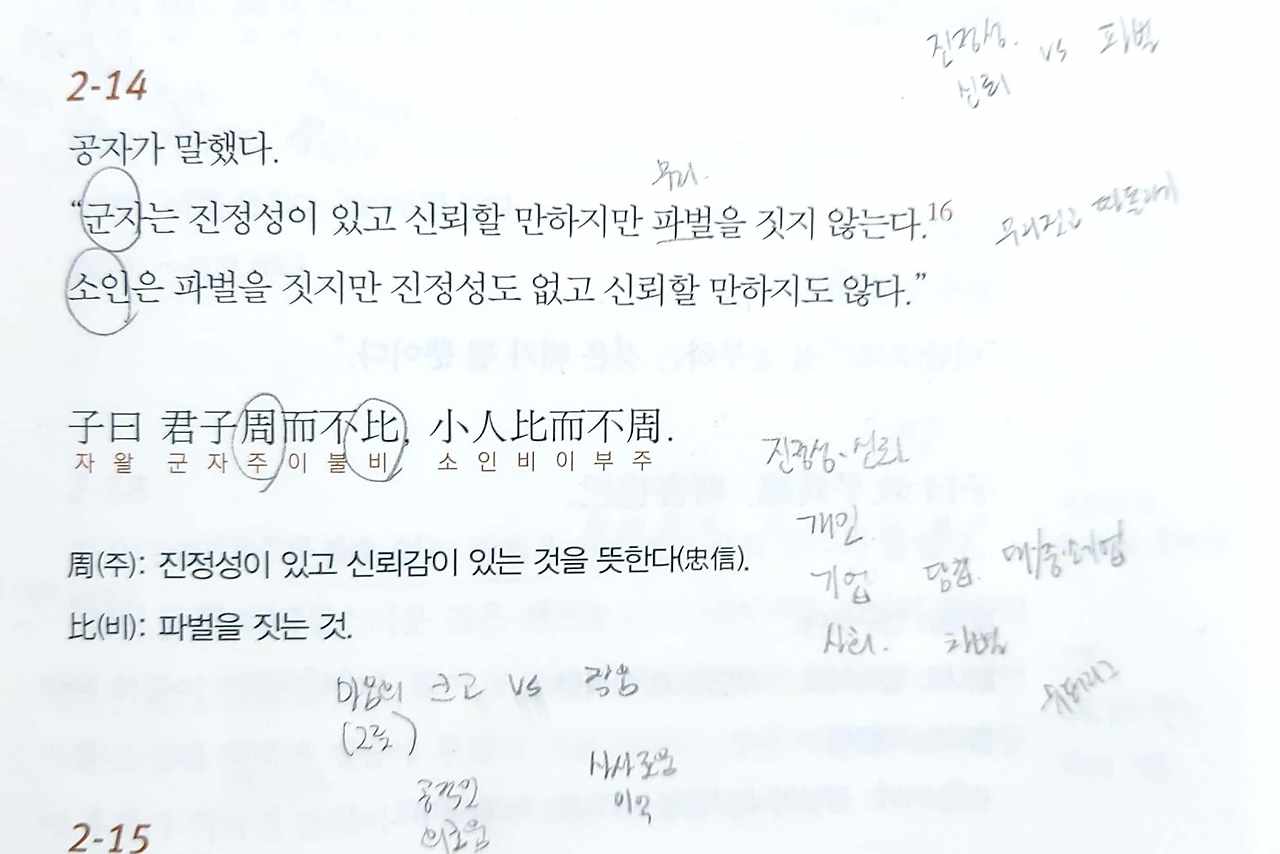 진정성. vs 파벌
신뢰
2-14
공자가 말했다.
무리.
“군자는 진정성이 있고 신뢰할 만하지만 파벌을 짓지 않는다.16
소인은 파벌을 짓지만 진정성도 없고 신뢰할 만하지도 않다.”
子曰 君子周而不比, 小人比而不周.
자왈 군자주이불비 소인비이부주
진정성·신뢰
개인.
周(주): 진정성이 있고 신뢰감이 있는 것을 뜻한다(忠信).
기업 담합. 대/중소기업
比(비): 파벌을 짓는 것.
사회. 파벌
마음의 크고 vs 작음
(2주)
공적인 사사로운
의로움 이익
2-15